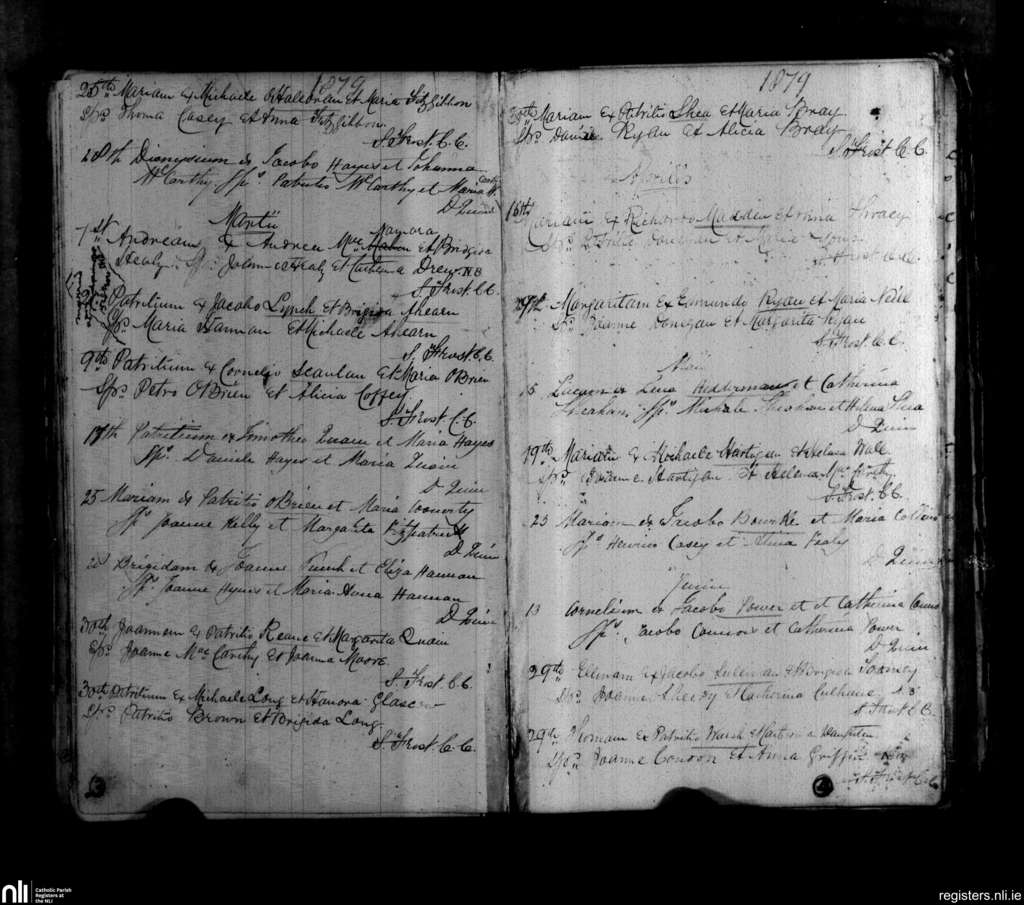 1879
25th Mariam Ex Michaele O'Halloran Et Maria FitzGibbon
Sprs Thoma Casey et Anna FitzGibbon
S. Frost. C.C.
28th Dionysium ex Jacobo Hayes et Johanna
McCarthy Sps. Patritio McCarthy et Maria McCarthy
D Quin
Martii
1st Andream Ex Andrea Mac Namara Et Brigida
Healy Sps. Joanne Healy Et Catherina Drew. N B
S. Frost. C.C.
Patritium Ex Jacobo Lynch et Brigida Ahearn
Sps. Maria Hannan Et Michaele Ahearn
S. Frost. C.C.
9th Patritium Ex Cornelio Scanlan Et Maria O'Brien
Sprs. Petro O'Brien Et Alicia Coffey
S. Frost C.C.
17th Patritium ex Timotheo Quain et Maria Hayes
Sps. Daniele Hayes et Maria Quain
D Quin
25 Mariam ex Patritio O'Brien et Maria
Sps. Joanne Kelly et Margarita Fitzpatrick
D Quin
Brigidam ex Joanne et Eliza Hannan
Sps. Joanne Hynes et Maria Anna Hannan
D Quin
30th Joannem Ex Patritio Keane Et Margarita Quain
Sps. Joanne Mac Carthy Et Joanna Moore.
S. Frost. C.C.
30th Patritium Ex Michaele Long et Hanora
Sprs Patritio Brown Et Brigida Long
S. Frost. C. C.
3
1879
30th Mariam Ex Patritio Shea et Maria
Sprs Daniele Ryan Et Alicia Brody
S. Frost C C.
Aprilis
Mariam Ex Richardo Madden et Anna
et Maria
S. Frost C.C.
27th Margaritam Ex Edmundo Ryan et Maria Neill
Sprs Joanne Donegan et Margarita Ryan
S. Frost. C.C.
Maii
5 et Catherina
Sheahan. Sps. Michaele Sheahan et Helena Shea
D Quin
19th Mariam Ex Michaele Hartigan et Helena Wall
Sprs. Joanne Hartigan Et Helena McCarthy
S. Frost. C.C.
25 Mariam ex Jacobo Bourke et Maria Collins
Sps Henrico Casey et Anna Fealy
D Quin
Junii
13 Cornelium ex Jacobo Power et et Catherina Connors
Sps. Jacobo Connors et Catherina Power
D Quin
29th Ellenam Ex Jacobo Sullivan Et Brigida Toomey
Sprs Joanne Sheedy et Catherina Culhane N B
S. Frost C.C.
29th Thomam Ex Patritio Walsh Et Catherina
Sprs. Joanne Condon Et Anna Griffin N B
S. Frost C.C.
4
nli
Catholic Parish
Registers at
the NLI
registers.nli.ie